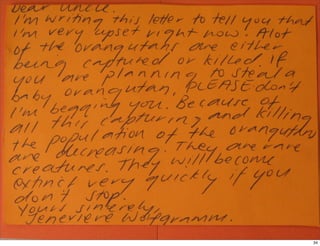 Dear Uncle.
I'm writing this letter to tell you that
I'm very upset right now. Alot
of the orangutans are either
being captured or killed. If
you are planning to steal a
baby orangutan, PLEASE don't
I'm begging you. Because of
all this capturing and killing
the population of the orangutans
are decreasing. They are rare
creatures. They will become
extinct very quickly if you
don't stop.
Yours sincerely,
Jeneviere Wolfgramm.